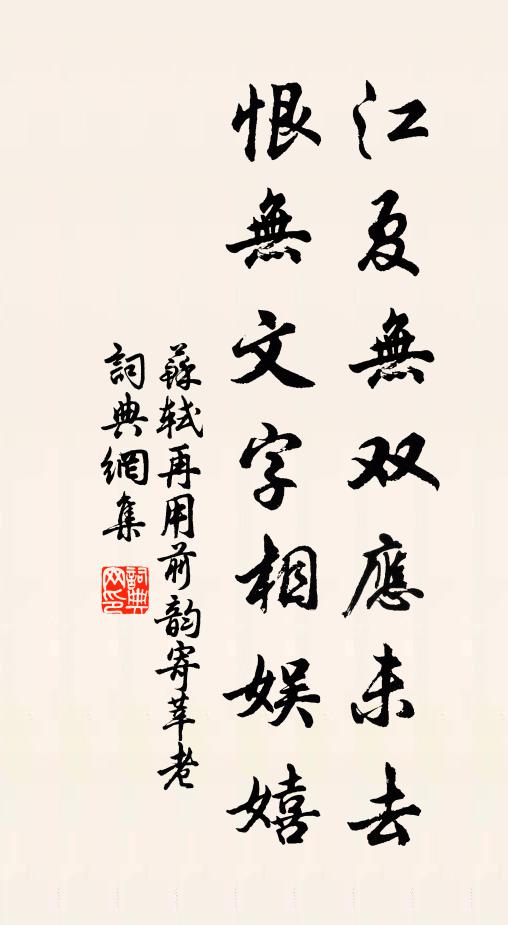 江夏無双應未去
恨無文字相娱嬉
蘇軾再用前韵寄莘老
詞典網集
詞典網印